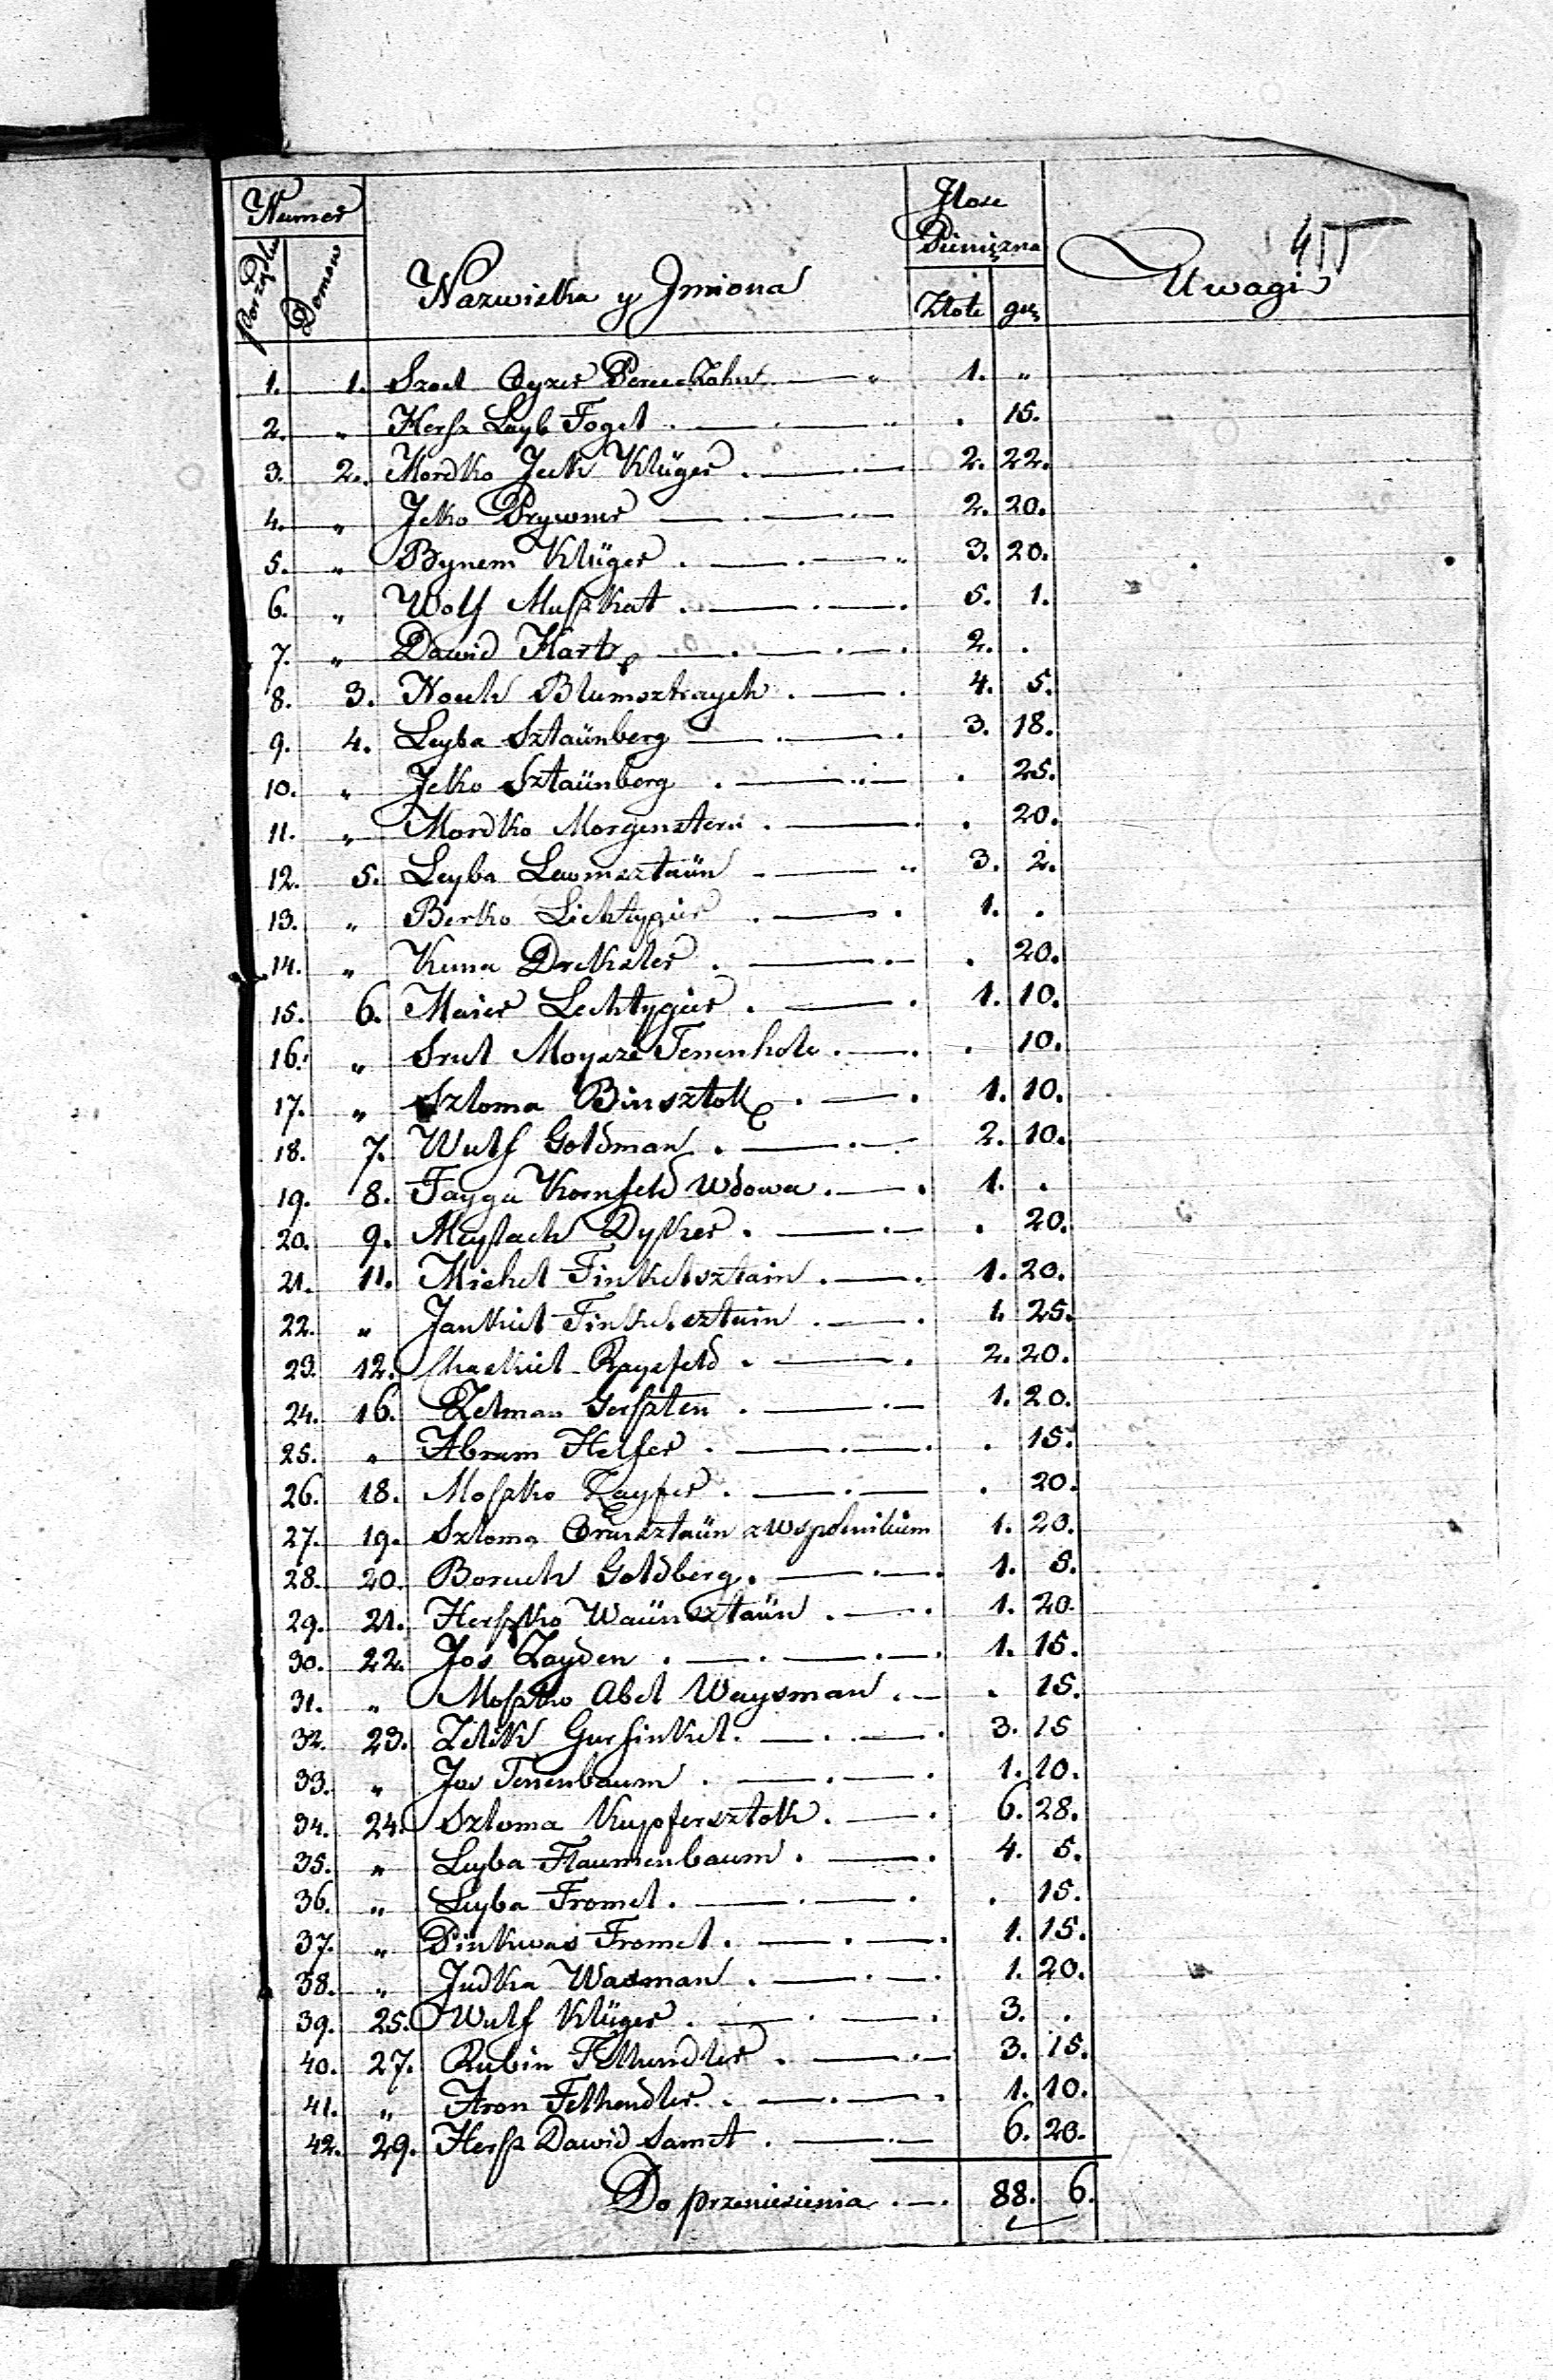 Numer
porządku
Domow
Nazwiska y Jmiona
Jlosc
Pieniężna
Złote
grz
Uwagi
1. 1. Szoel Eyzer 1. „
2. „ Hersz Leyb Fogel . 15.
3. 2. Mordko Jcek Klüger 2. 22.
4. „ Jcko Prywmer 2. 20.
5. „ Bynem Klüger 3. 20.
6. „ Wolf Muszkat 5. 1.
7. „ Dawid Kartz 2. .
8. 3. Nouch Blumsztraych 4. 5.
9. 4. Leyba Sztaünberg 3. 18.
10. „ Jcko Sztaünberg . 25.
11. „ Mordko Morgensztern . 20.
12. 5. Leyba Lewmsztaün 3. 2.
13. „ Berko Lichtygier 1. .
14. „ Kuna Drekszler . 20.
15. 6. Maier Lechtygier 1. 10.
16. „ Srul Moysze Tenenholc . 10.
17. „ Szloma Binsztok 1. 10.
18. 7. Wulf Goldman 2. 10.
19. 8. Fayga Kornfeld Wdowa 1. .
20. 9. Dysker . 20.
21. 11. Michel Finkelsztain 1. 20.
22. „ Jankiel Finkelsztain 1. 25.
23. 12. Chaskiel Rayzfeld 2. 20.
24. 16. Zelman Gerszten 1. 20.
25. „ Abram Helfer . 15.
26. 18. Moszko Zayfer . 20.
27. 19. Szloma z Wspolnikiem 1. 20.
28. 20. Boruch Goldberg 1. 5.
29. 21. Herszko Waünsztaün 1. 20.
30. 22. Jos Zayden 1. 15.
31. „ Moszko Abel Waysman . 15.
32. 23. Zelik Gurfinkel 3. 15
33. „ Jos Tenenbaum 1. 10.
34. 24. Szloma Kupfersztok 6. 28.
35. „ Leyba Flaumenbaum 4. 5.
36. „ Leyba Fromel . 15.
37. „ Pinkwas Fromel 1. 15.
38. „ Judka Wasman 1. 20.
39. 25. Wulf Klüger 3. .
40. 27. Rubin Felhendler 3. 15.
41. „ Aron Felhendler 1. 10.
42. 29. Hersz Dawid Samet 6. 20.
Do przeniesienia 88. 6.